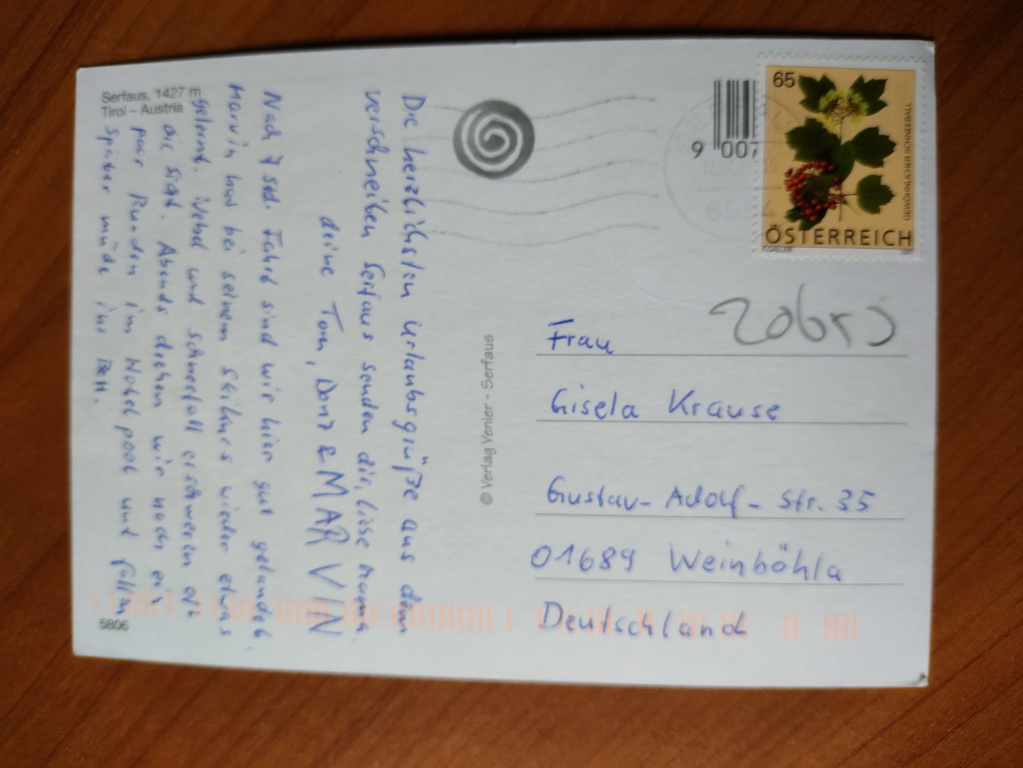 Serfaus, 1427 m
Tirol – Austria
Die herzlichsten Urlaubsgrüße aus dem
verschneiten Serfaus senden dir, liebe Mama
deine Tom, & MARVIN
Nach 7 Std. Fahrt sind wir hier gut gelandet
Marvin hat bei seinem Skikurs wieder etwas
gelernt. Nebel und Schneefall erschweren oft
die Sicht. Abends drehen wir noch ein
paar Runden im Hotelpool und fallen
später müde ins Bett.
5806
© Verlag Venier - Serfaus
9 007
65
GEWÖHNLICHER SCHNEEBALL
ÖSTERREICH
Frau
Gisela Krause
Gustav-Adolf-Str. 35
01689 Weinböhla
Deutschland